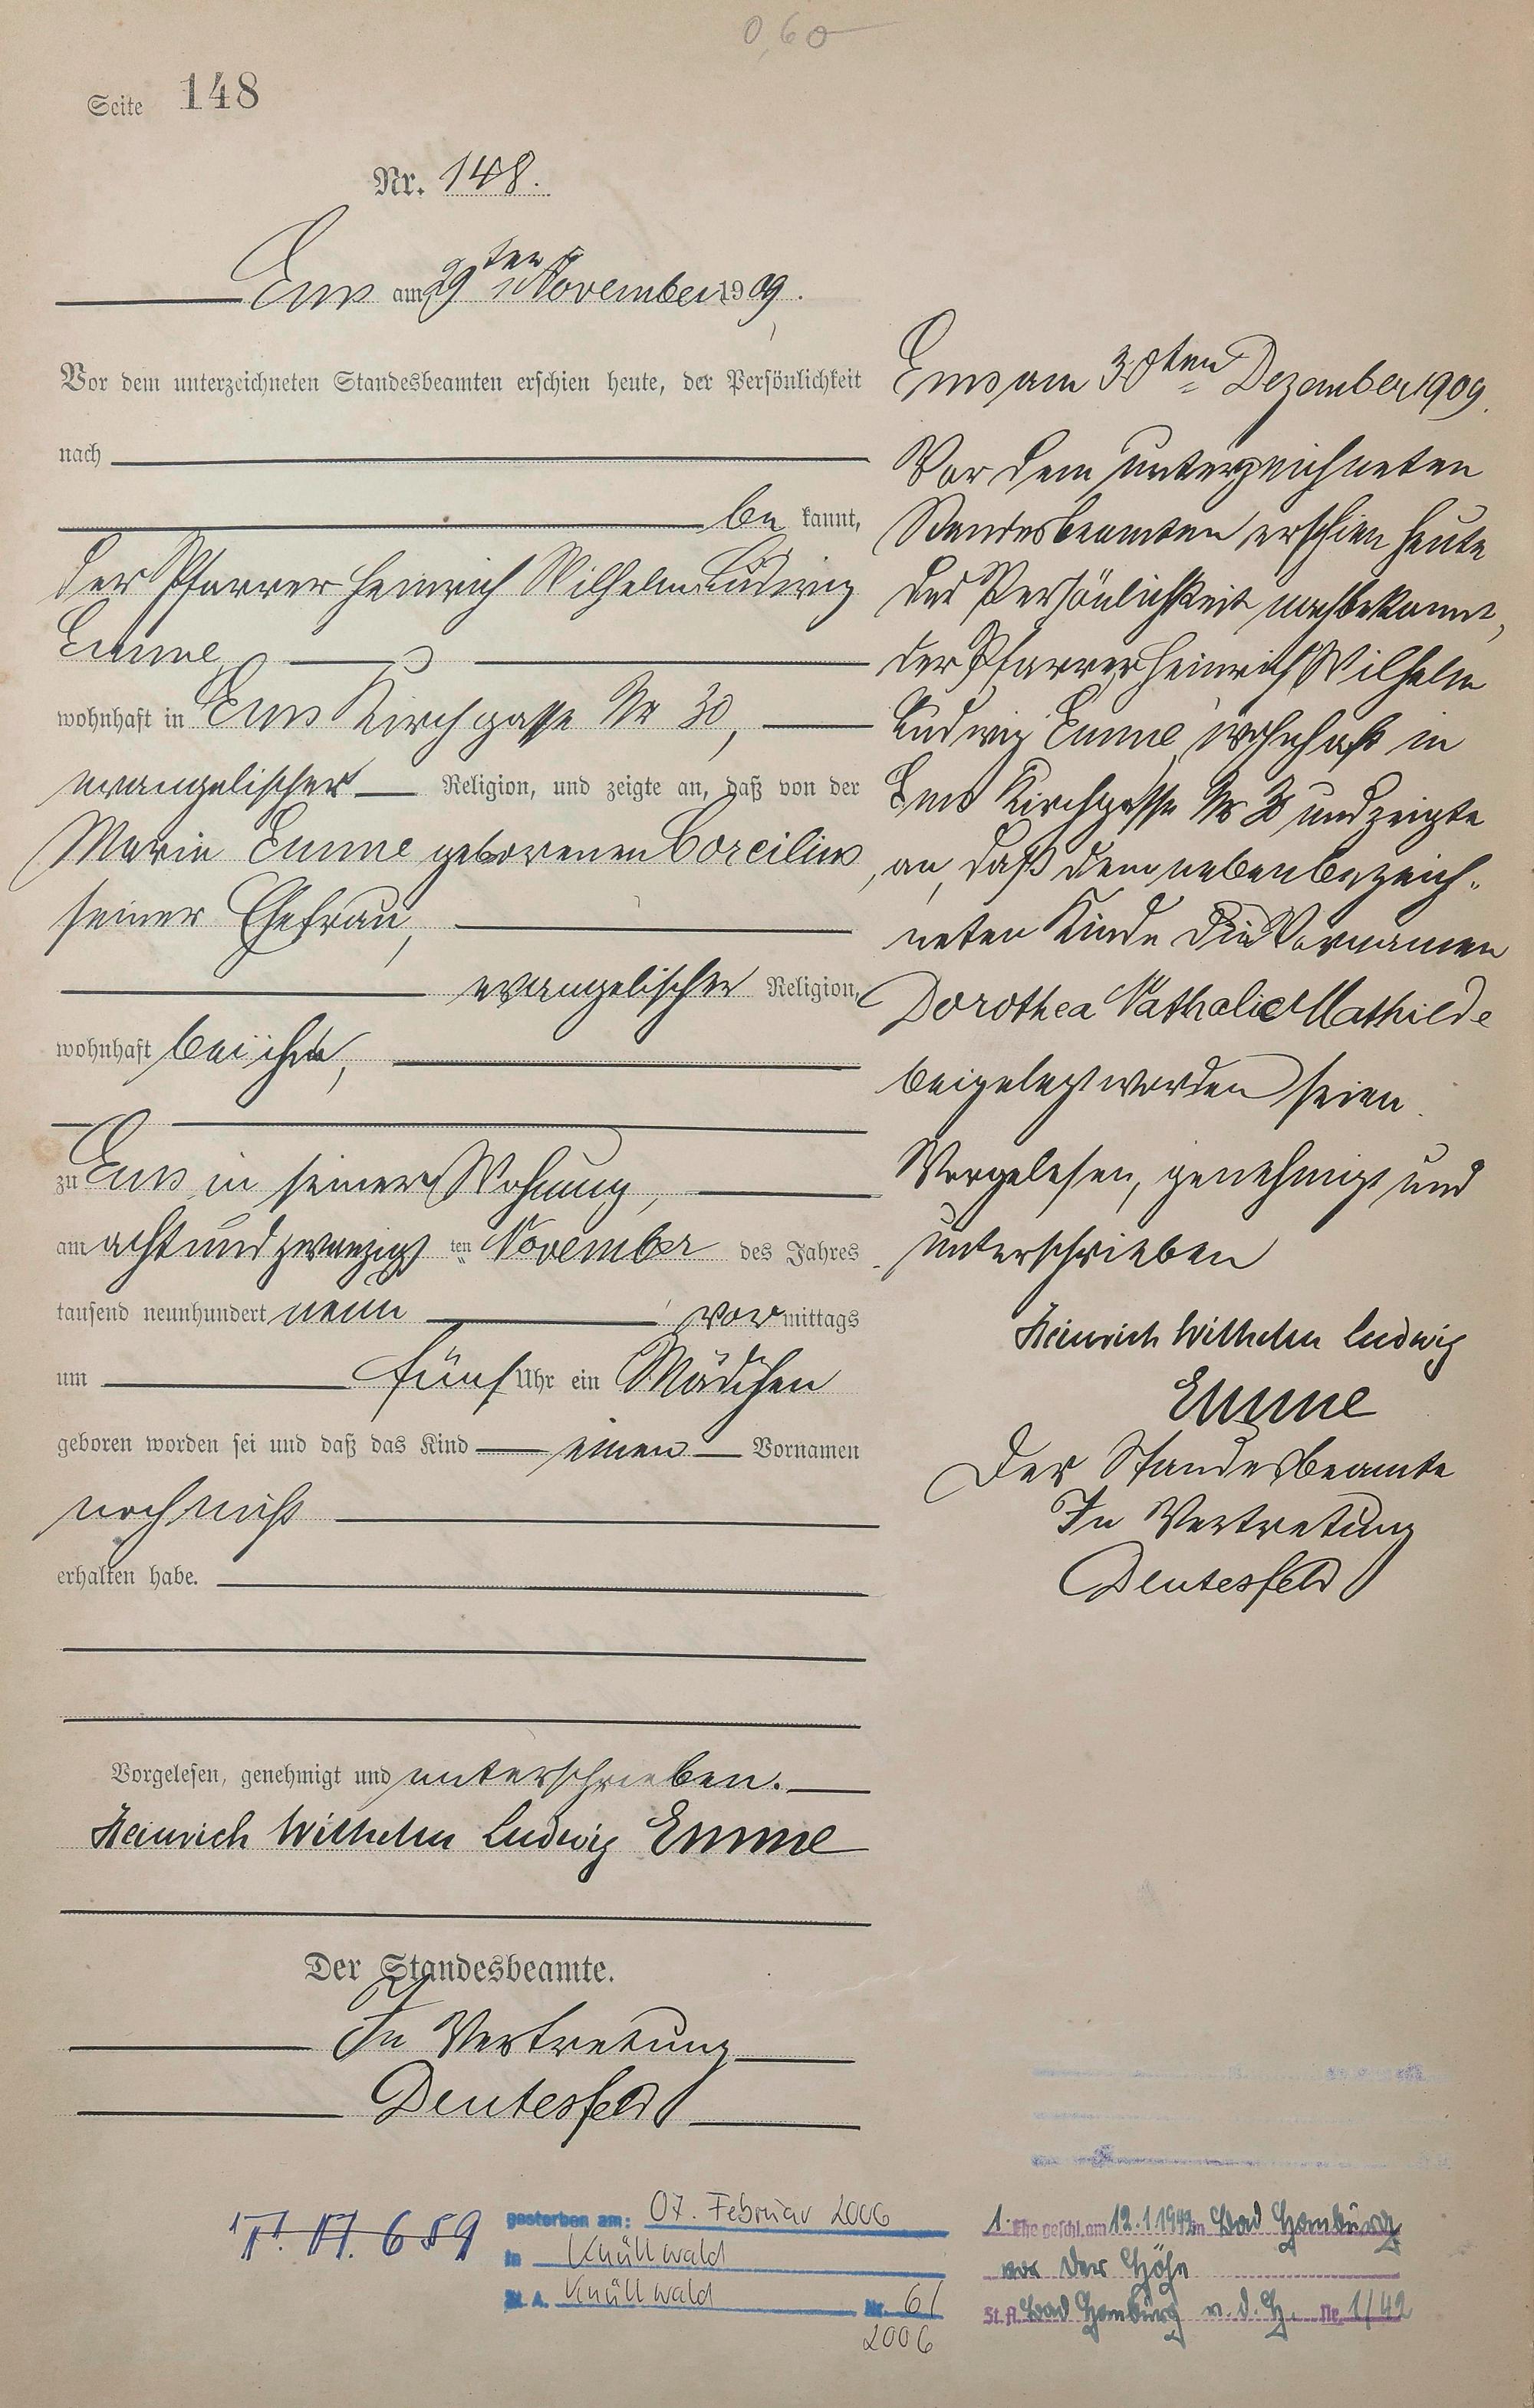 0,60
Seite 148
Nr. 148.
Ems am 29ten November 1909.
Vor dem unterzeichneten Standesbeamten erschien heute, der Persönlichkeit
nach
be kannt,
der Pfarrer Heinrich Wilhelm Ludwig
Emme,
wohnhaft in Ems Kirchgasse Nr 30,
evangelischer Religion, und zeigte an, daß von der
Marie Emme geborenen Corcilius,
seiner Ehefrau,
evangelischer Religion,
wohnhaft bei ihm,
zu Ems in seiner Wohnung,
am acht und zwanzigsten November des Jahres
tausend neunhundert neun vormittags
um fünf Uhr ein Mädchen
geboren worden sei und daß das Kind einen Vornamen
noch nicht
erhalten habe.
Vorgelesen, genehmigt und unterschrieben.
Heinrich Wilhelm Ludwig Emme
Der Standesbeamte.
In Vertretung
Deutesfeld
Ems am 30ten Dezember 1909.
Vor dem unterzeichneten
Standesbeamten erschien heute
der Persönlichkeit nach bekannt,
der Pfarrer Heinrich Wilhelm
Ludwig Emme, wohnhaft in
Ems Kirchgasse Nr 30 und zeigte
an, daß dem nebenbezeich-
neten Kinde die Vornamen
Dorothea Nathalie Mathilde
beigelegt worden seien.
Vorgelesen, genehmigt und
unterschrieben
Heinrich Wilhelm Ludwig
Emme
Der Standesbeamte
In Vertretung
Deutesfeld
689
gestorben am: 07. Februar 2006
in Knüllwald
St. A. Knüllwald Nr. 6/
2006
1. Ehe geschl. am 12.1.1942 in Bad Homburg
vor der Höhe
St. A. Bad Homburg v. d. H. Nr. 1/42